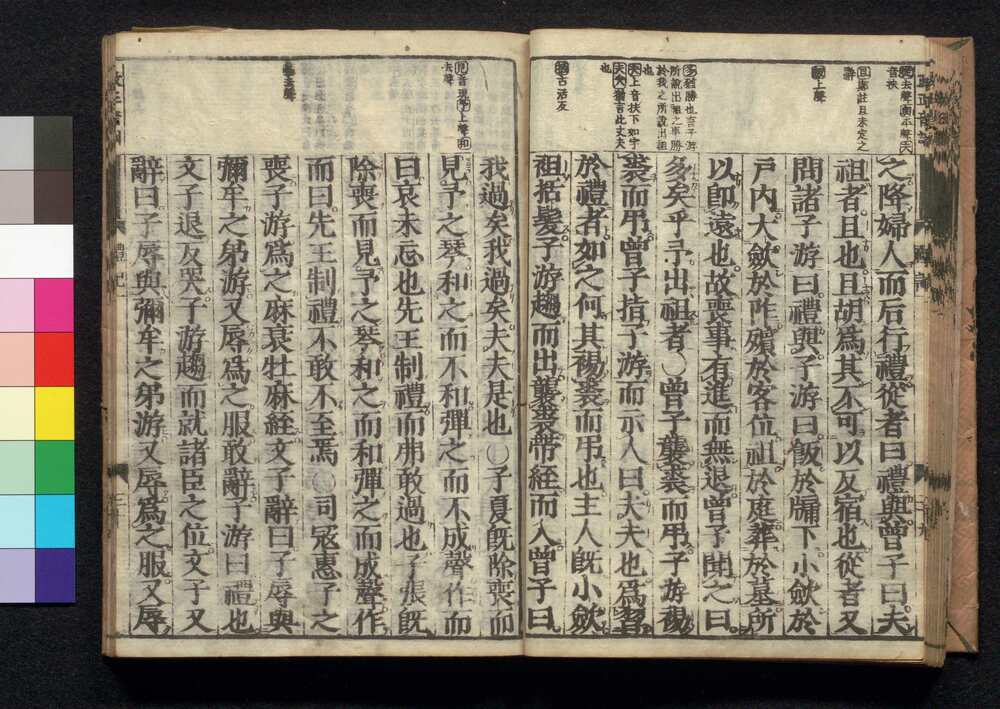 之降婦人而后行禮從者曰禮與曾子曰夫
祖者且也且胡爲其不可以反宿也從者又
問諸子游曰禮與子游曰飯於牖下小斂於
戶内大斂於阼殯於客位祖於庭葬於墓所
以即遠也故喪事有進而無退曾子聞之曰
多矣乎予出祖者○曾子襲裘而弔子游裼
裘而弔曾子指子游而示人曰夫夫也爲習
於禮者如之何其裼裘而弔也主人既小斂
袒括髮子游趨而出襲裘帶絰而入曾子曰
我過矣我過矣夫夫是也○子夏既除喪而
見予之琴和之而不和彈之而不成聲作而
曰哀未忘也先王制禮而弗敢過也子張既
除喪而見予之琴和之而和彈之而成聲作
而曰先王制禮不敢不至焉○司寇惠子之
喪子游爲之麻衰牡麻絰文子辭曰子辱與
彌牟之弟游又辱爲之服敢辭子游曰禮也
文子退反哭子游趨而就諸臣之位文子又
辭曰子辱與彌牟之弟游又辱爲之服又辱
且鄭註且未定之
辭
上聲
多猶勝也言子游
所說出祖之事勝
於我之所說出祖
也
夫夫上音扶下如字
夫夫猶言此丈夫
也
括古活反
見音現予上聲和
去聲
禮記